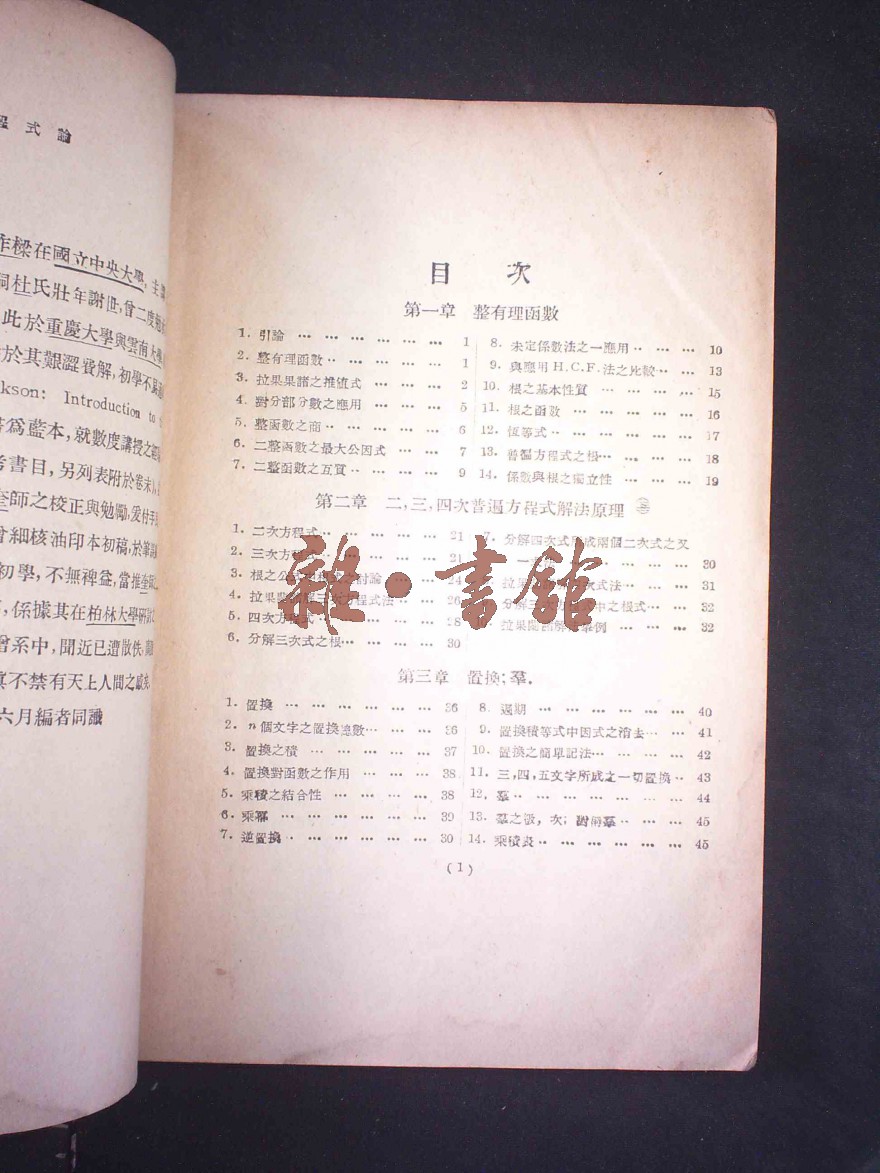 程式論
作樑在國立中央大學,主講
杜氏壯年謝世,曾二度
此於重慶大學與雲南大學
於其艱澀費解,初學不
kson: Introduction to
爲藍本,就數度講授之
考書目,另列表附於卷末
師之校正與勉勵,爰付手
曾細核油印本初稿,於
初學,不無裨益,當推
,係據其在柏林大學研
曾系中,聞近已遭散佚,
眞不禁有天上人間之
六月編者同識
目 次
第一章 整有理函數
1. 引論 … … … … … … 1
2. 整有理函數 … … … … 1
3. 拉果果諸之推値式 … … … 4
4. 對分部分數之應用 … … … 5
5. 整函數之商 … … … … 6
6. 二整函數之最大公因式 … … 7
7. 二整函數之互質 … … … 9
8. 未定係數法之一應用 … … … 10
9. 與應用H.C.F.法之比較 … … 13
10. 根之基本性質 … … … … 15
11. 根之函数 … … … … … 16
12. 恆等式 … … … … … 17
13. 普遍方程式之根 … … … … 18
14. 係數與根之獨立性 … … … 19
第二章 二,三,四次普遍方程式解法原理
1. 二次方程式 … … … … 21
2. 三次方程式 … … … … 21
3. 根之公 討論 … … 24
4. 拉果 解三次方程式法 … … 26
5. 四次方程式 … … … … 28
6. 分解三次式之根 … … … 30
7. 分解四次式 成兩個二次式之又
一 … … … … 30
8. 拉果 次式法 … … … 31
9. 分解三次方 中之根式 … … 32
10. 拉果 解 舉例 … … … 32
第三章 置換;羣.
1. 置換 … … … … … … 36
2. n個文字之置換總數 … … … 36
3. 置換之積 … … … … … 37
4. 置換對函數之作用 … … … 38
5. 乘積之結合性 … … … … 38
6. 乘冪 … … … … … … 39
7. 逆置換 … … … … … 30
8. 週期 … … … … … … 40
9. 置換積等式中因式之消去 … … 41
10. 置換之簡單記法 … … … … 42
11. 三,四,五文字所成之一切置換 … 43
12. 羣 … … … … … … 44
13. 羣之級,次;附屬羣 … … … 45
14. 乘積表 … … … … … … 45
(1)
雜·書館